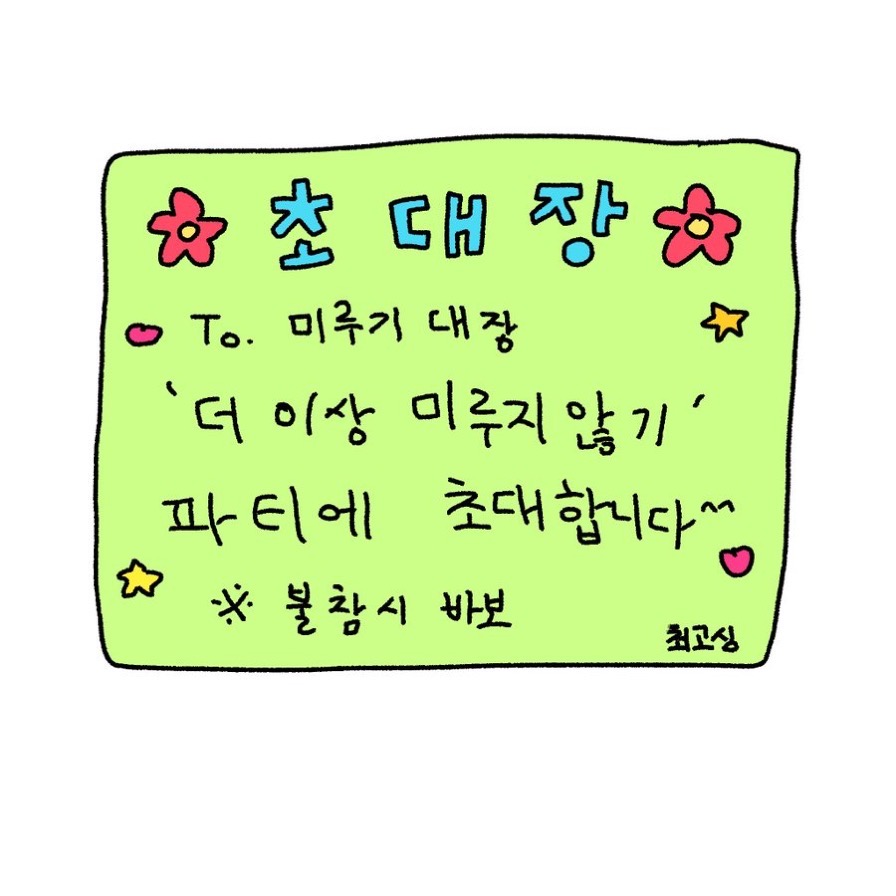 초대장
To. 미루기 대장
'더 이상 미루지 않기'
파티에 초대합니다^^
※ 불참시 바보
최고심